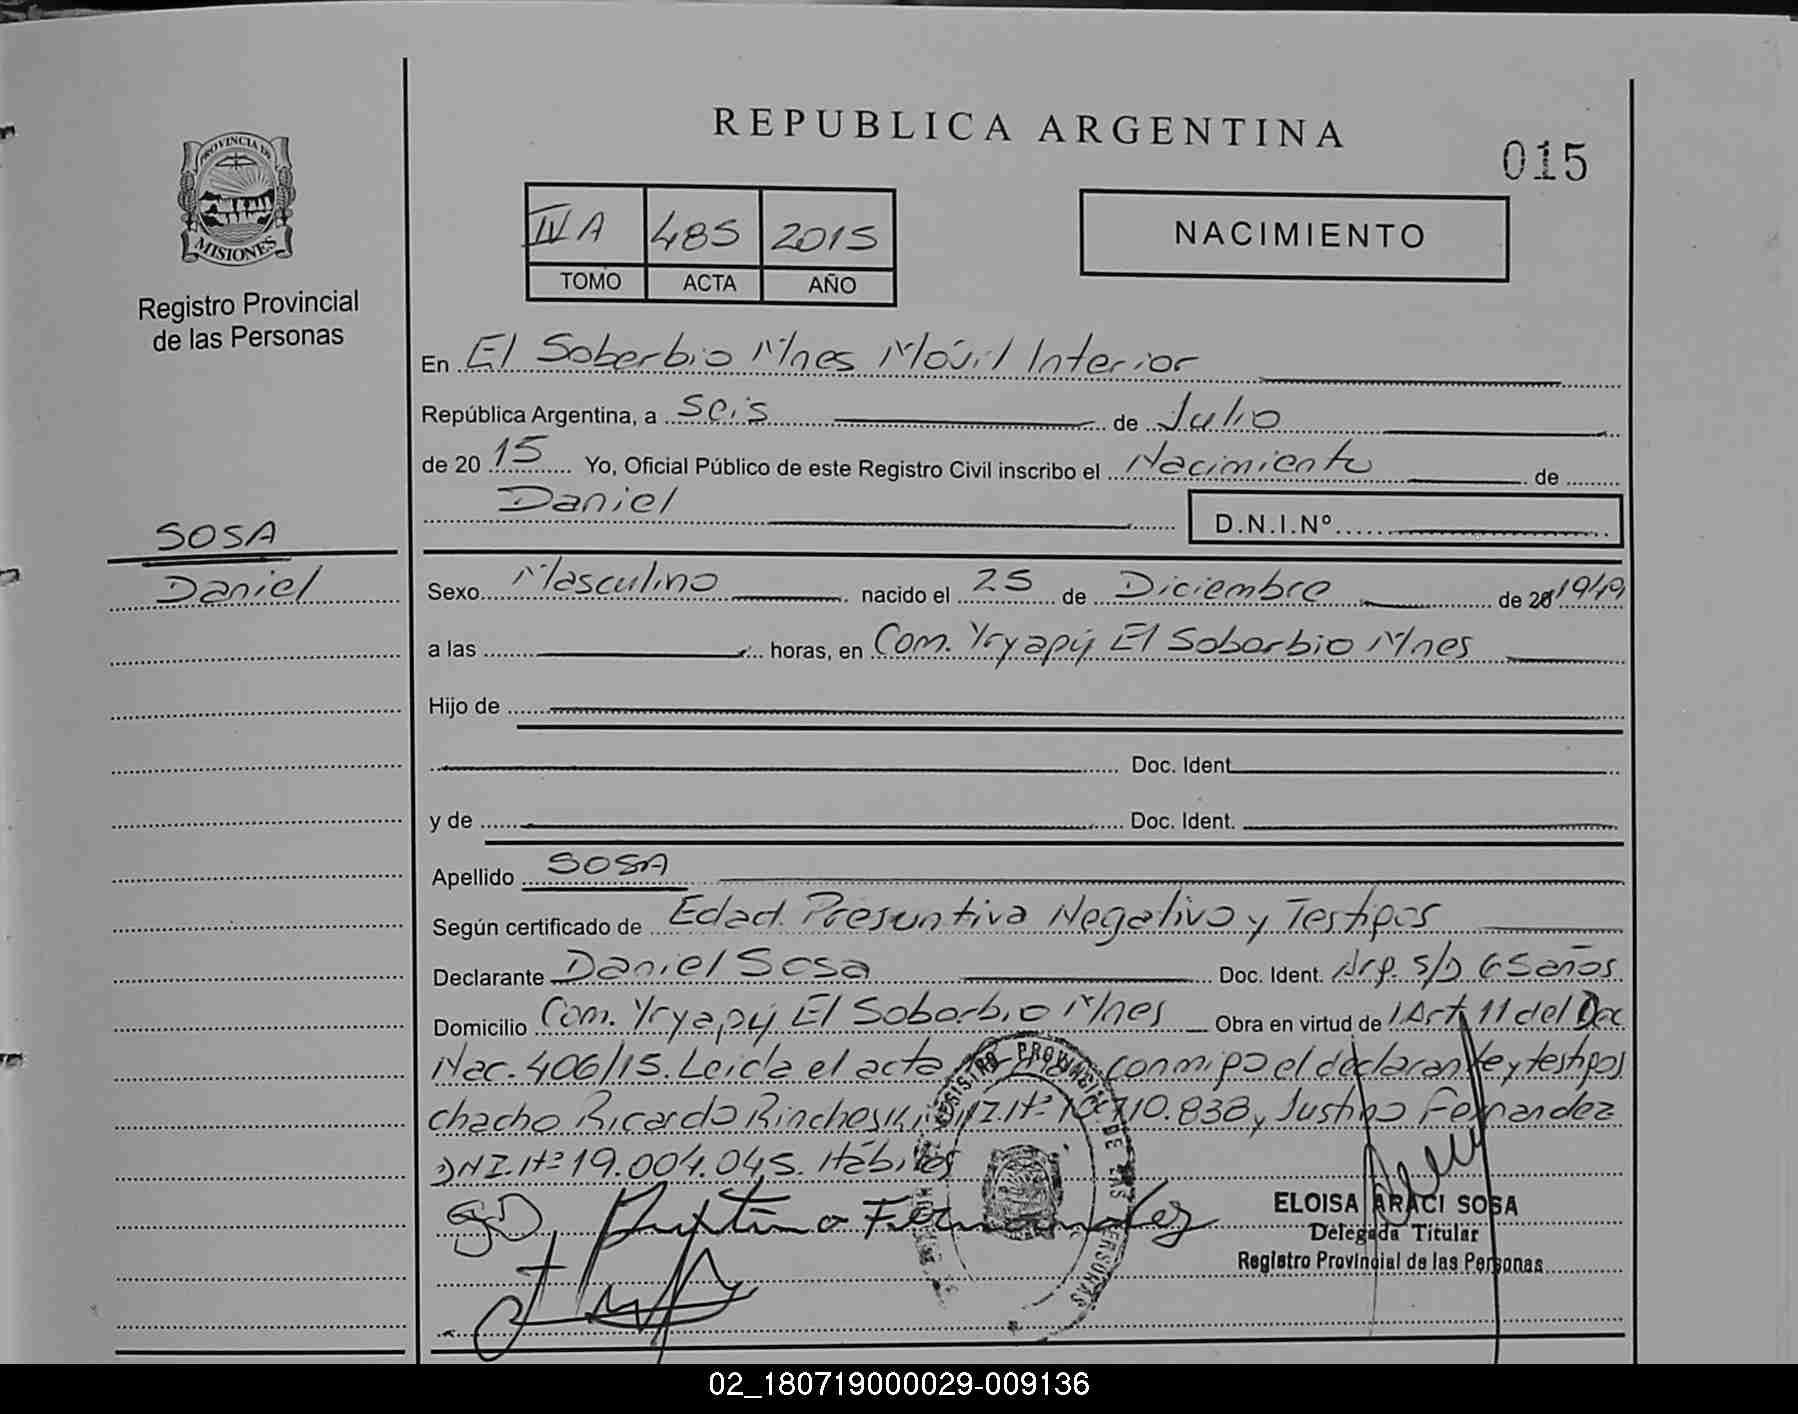 REPUBLICA ARGENTINA
015
PROVINCIA DE
MISIONES
Registro Provincial
de las Personas
IV A 485 2015
TOMO ACTA AÑO
NACIMIENTO
En El Soberbio Mnes Móvil Interior
República Argentina, a Seis de Julio
de 20 15 Yo, Oficial Público de este Registro Civil inscribo el Nacimiento de
Daniel D.N.I.Nº
SOSA
Daniel
Sexo Masculino nacido el 25 de Diciembre de 20 1949
a las horas, en Com. Yryapy El Soberbio Mnes
Hijo de
Doc. Ident
y de Doc. Ident.
Apellido SOSA
Según certificado de Edad Presuntiva Negativo y Testigos
Declarante Daniel Sosa Doc. Ident. Arg. S/D 65 años
Domicilio Com. Yryapy El Soberbio Mnes Obra en virtud de Art 11 del Dec
Nac. 406/15. Leida el acta conmigo el declarante y testigos
chacho Ricardo 710.838 y Justino Fernandez
DNI.Nº 19.004.045. Hábiles
SD Justino Fernandez
REGISTRO PROVINCIAL DE LAS PERSONAS
ELOISA ARACI SOSA
Delegada Titular
Registro Provincial de las Personas
02_180719000029-009136